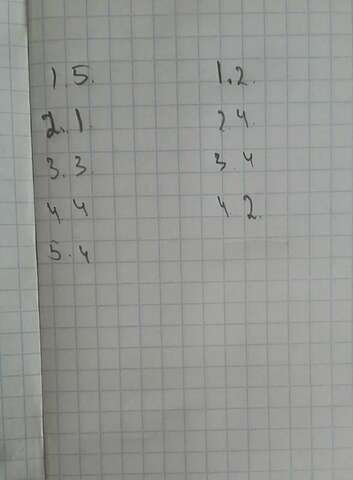 1.5. 1.2.
2.1. 2.4.
3.3 3 4
4 4 4 2.
5.4